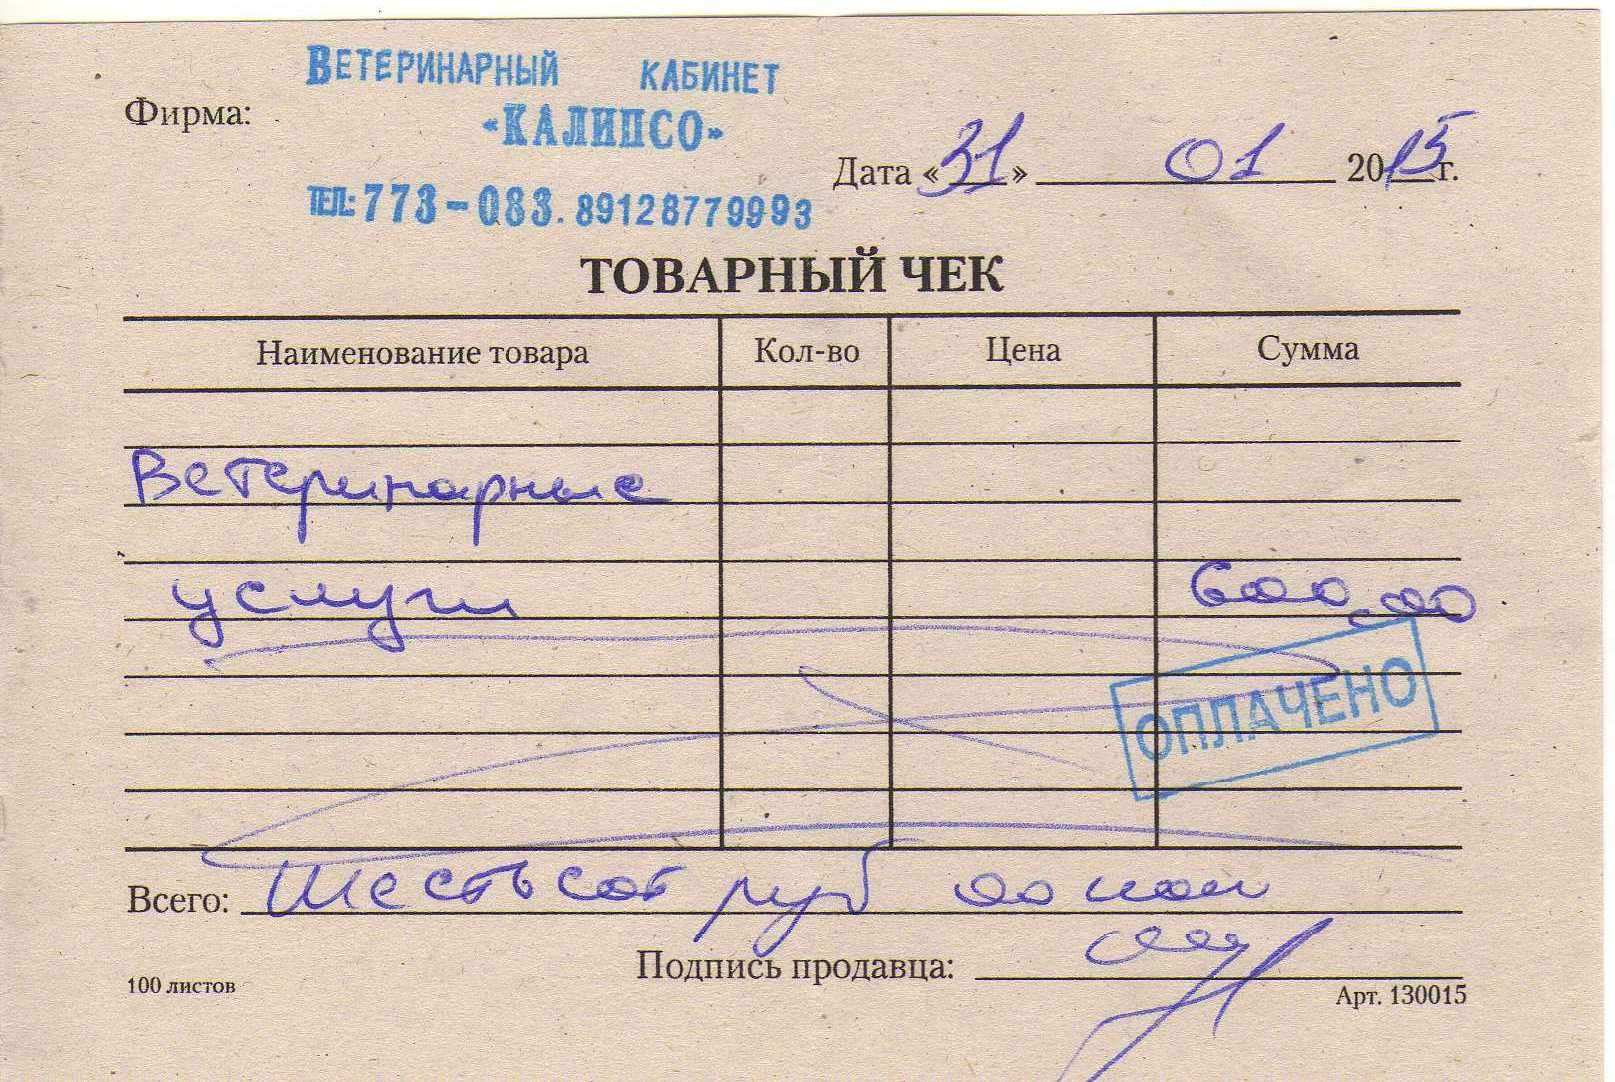 ВЕТЕРИНАРНЫЙ КАБИНЕТ
Фирма: «КАЛИПСО»
Дата «31» 01 2015 г.
ТЕЛ: 773-083. 89128779993
ТОВАРНЫЙ ЧЕК
Наименование товара Кол-во Цена Сумма
Ветеринарные
услуги 600,00
ОПЛАЧЕНО
Всего: Шестьсот руб 00 коп
Подпись продавца:
100 листов
Арт. 130015